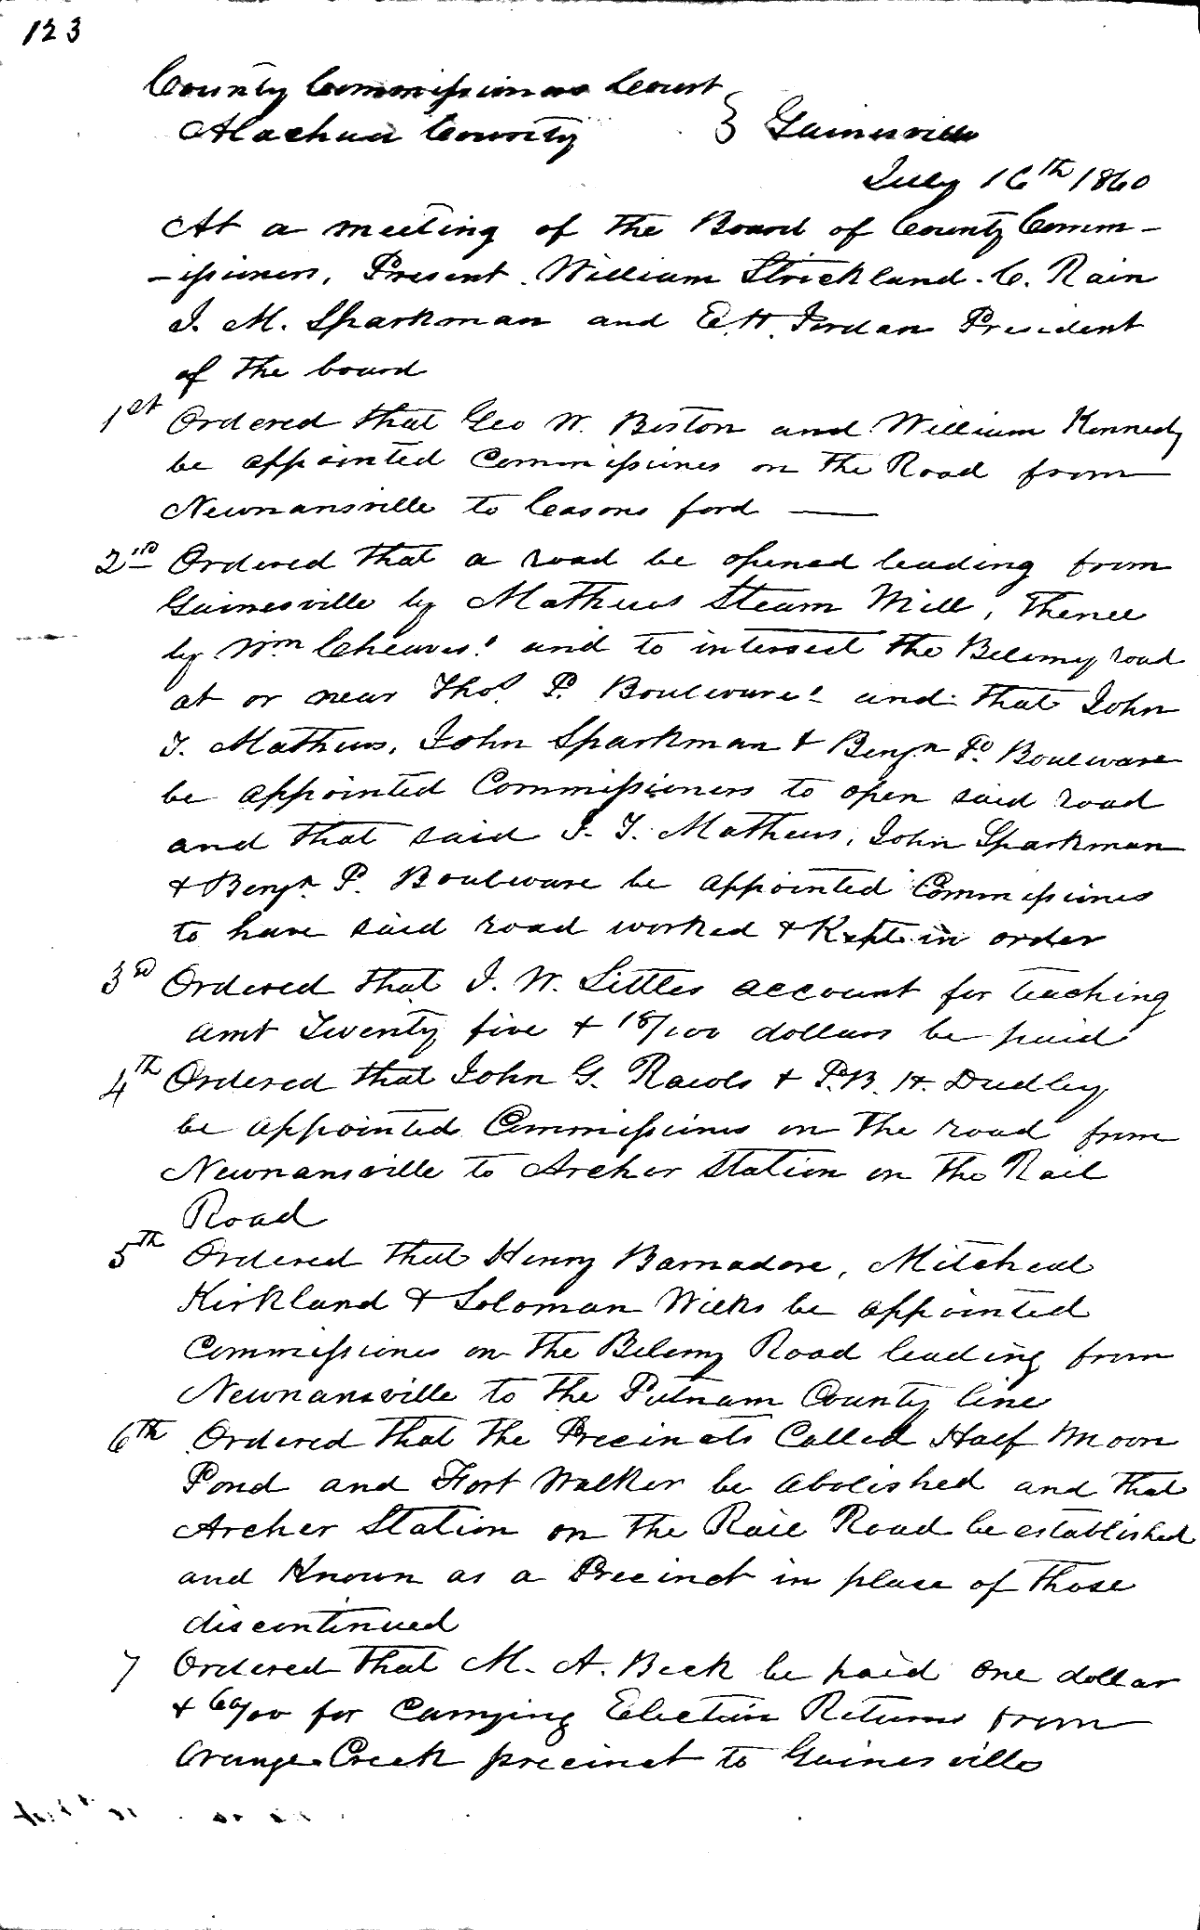 123
County Commissioners Court
Alachua County } Gainesville
July 16th 1860
At a meeting of the Board of County Comm-
-issioners, Present. William Strickland. C. Rain
J. M. Sparkman and E. H. Jordan President
of the board
1st Ordered that Geo W. Boston and William Kennedy
be appointed Commissiones on the Road from
Newnansville to Casons ford —
2nd Ordered that a road be opened leading from
Gainesville by Mathews Steam Mill, Thence
by Wm Cheaves' and to intersect the Belemy road
at or near Thos. P. Boulware' and that John
T. Mathews, John Sparkman + Benjn P. Boulware
be appointed Commissioners to open said road
and that said J. T. Mathews, John Sparkman
+ Benjn P. Boulware be appointed Commissiones
to have said road worked + Kept in order
3rd Ordered that J. W. Littles account for teaching
amt Twenty five + 18/100 dollars be paid
4th Ordered that John G. Rawls + P. B. H. Dudley
be appointed Commissiones on the road from
Newnansville to Archer Station on the Rail
Road
5th Ordered that Henry Barnadore, Mitchell
Kirkland + Soloman Wilks be appointed
Commissiones on the Belemy Road leading from
Newnansville to the Putnam County line
6th Ordered that the Precincts Called Half Moon
Pond and Fort Walker be abolished and that
Archer Station on the Rail Road be established
and Known as a Precinct in place of those
discontinued
7 Ordered that M. A. Beck be paid one dollar
+ 60/00 for Carrying Election Returns from
Orange Creek precinct to Gainesville